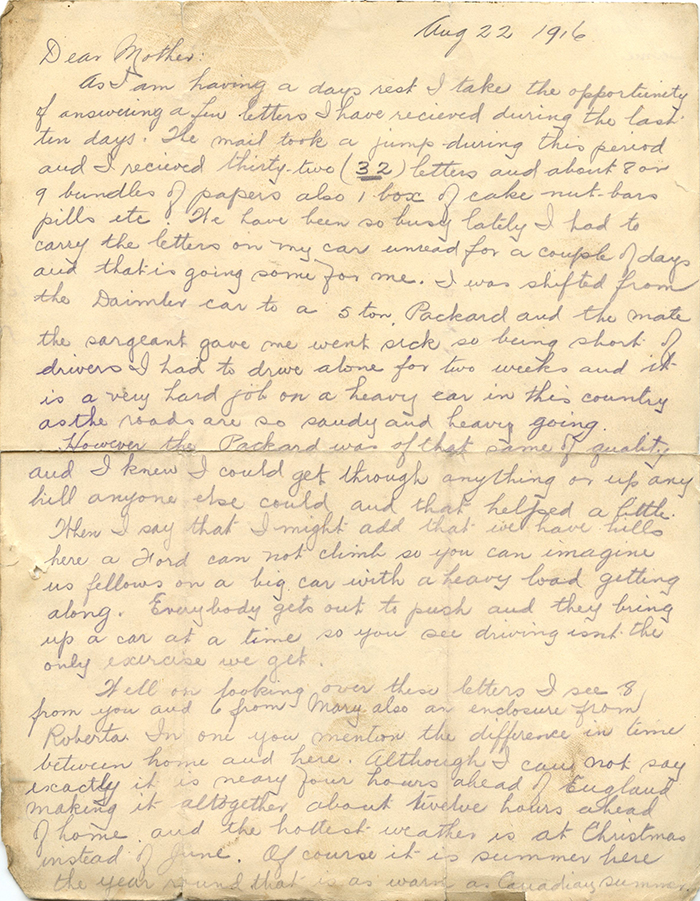 Aug 22 1916
Dear Mother:
As I am having a days rest I take the opportunity
of answering a few letters I have recieved during the last
ten days. The mail took a jump during this period
and I recieved thirty-two (32) letters and about 8 or
9 bundles of papers also 1 box of cake nut-bars
pills etc. We have been so busy lately I had to
carry the letters on my car unread for a couple of days
and that is going some for me. I was shifted from
the Daimler car to a 5 ton Packard and the mate
the sargeant gave me went sick so being short of
drivers I had to drive alone for two weeks and it
is a very hard job on a heavy car in this country
as the roads are so sandy and heavy going.
However the Packard was of that same of quality
and I knew I could get through anything or up any
hill anyone else could and that helped a little.
When I say that I might add that we have hills
here a Ford can not climb so you can imagine
us fellows on a big car with a heavy load getting
along. Everybody gets out to push and they bring
up a car at a time so you see driving isnt the
only exercise we get.
Well on looking over these letters I see 8
from you and 6 from Mary also an enclosure from
Roberta. In one you mention the difference in time
between home and here. Although I can not say
exactly it is neary four hours ahead of England
making it altogether about twelve hours ahead
of home and the hottest weather is at Christmas
instead of June. Of course it is summer here
the year round that is as warm as Canadian summer.